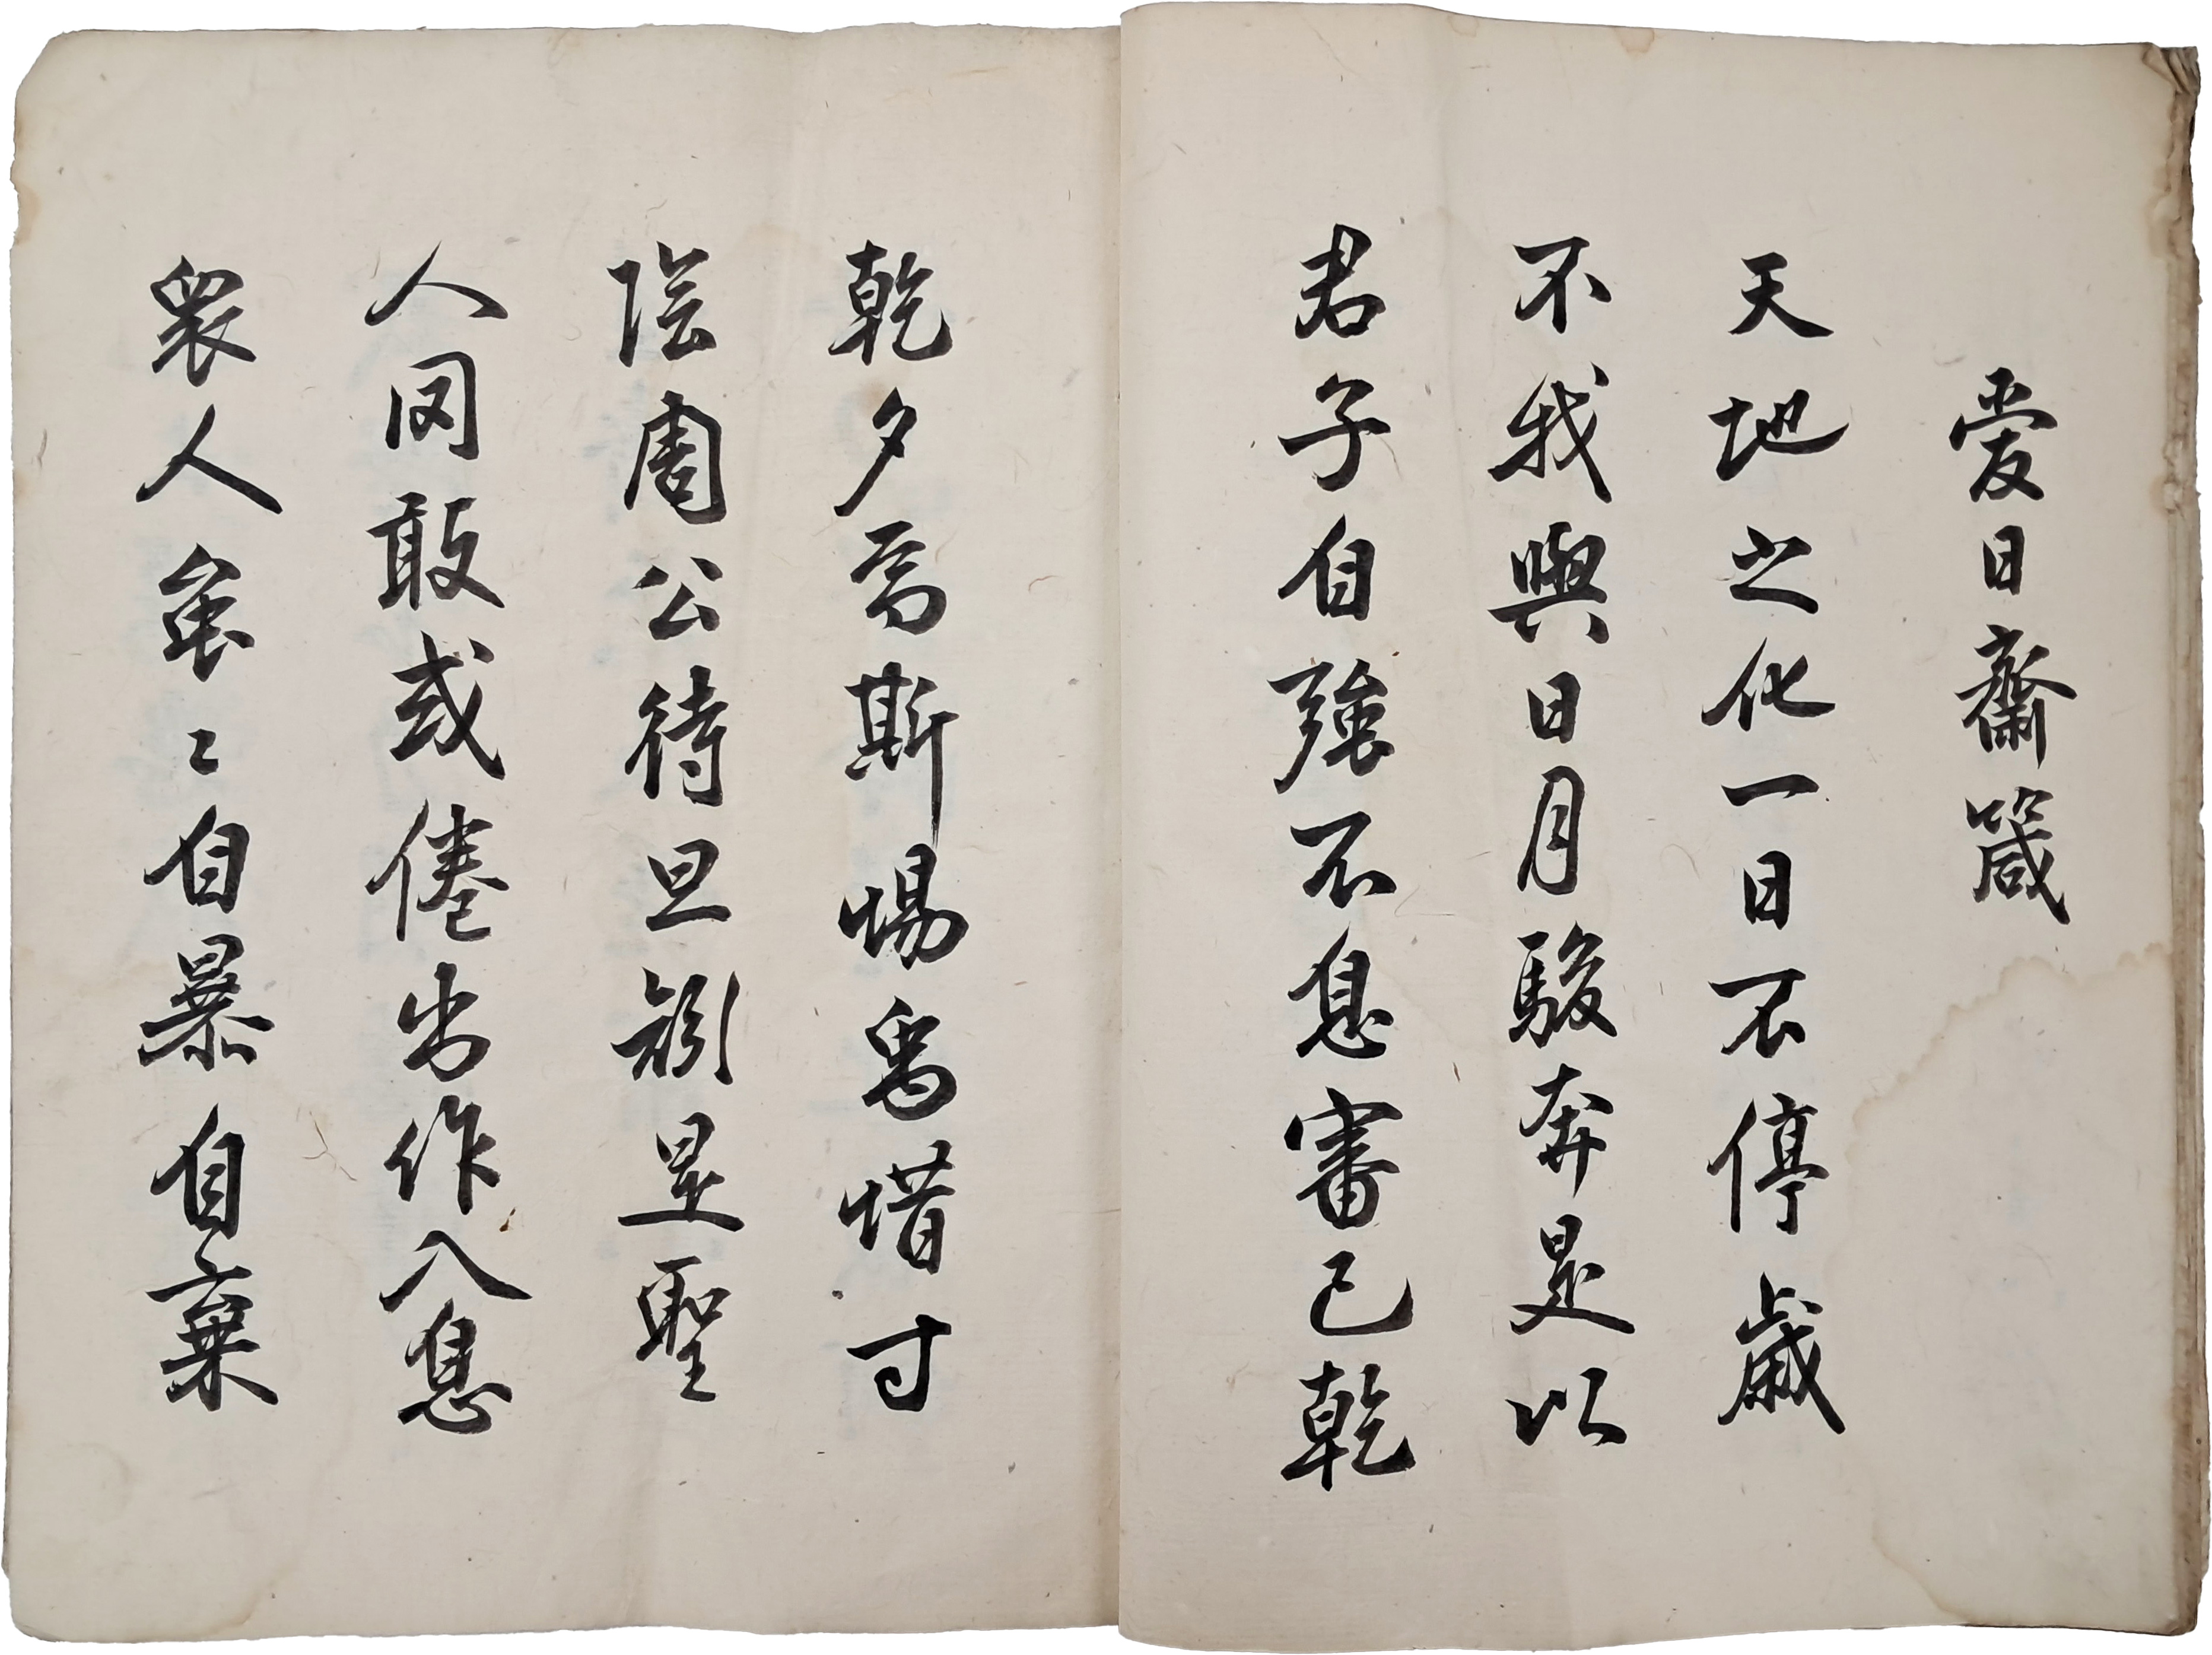 愛日齋箴
天地之化一日不停歲
不我與日月駿奔是以
君子自强不息審己乾
乾夕焉斯惕禹惜寸
陰周公待旦矧是聖
人罔敢或倦出作入息
衆人蚩〻自暴自棄